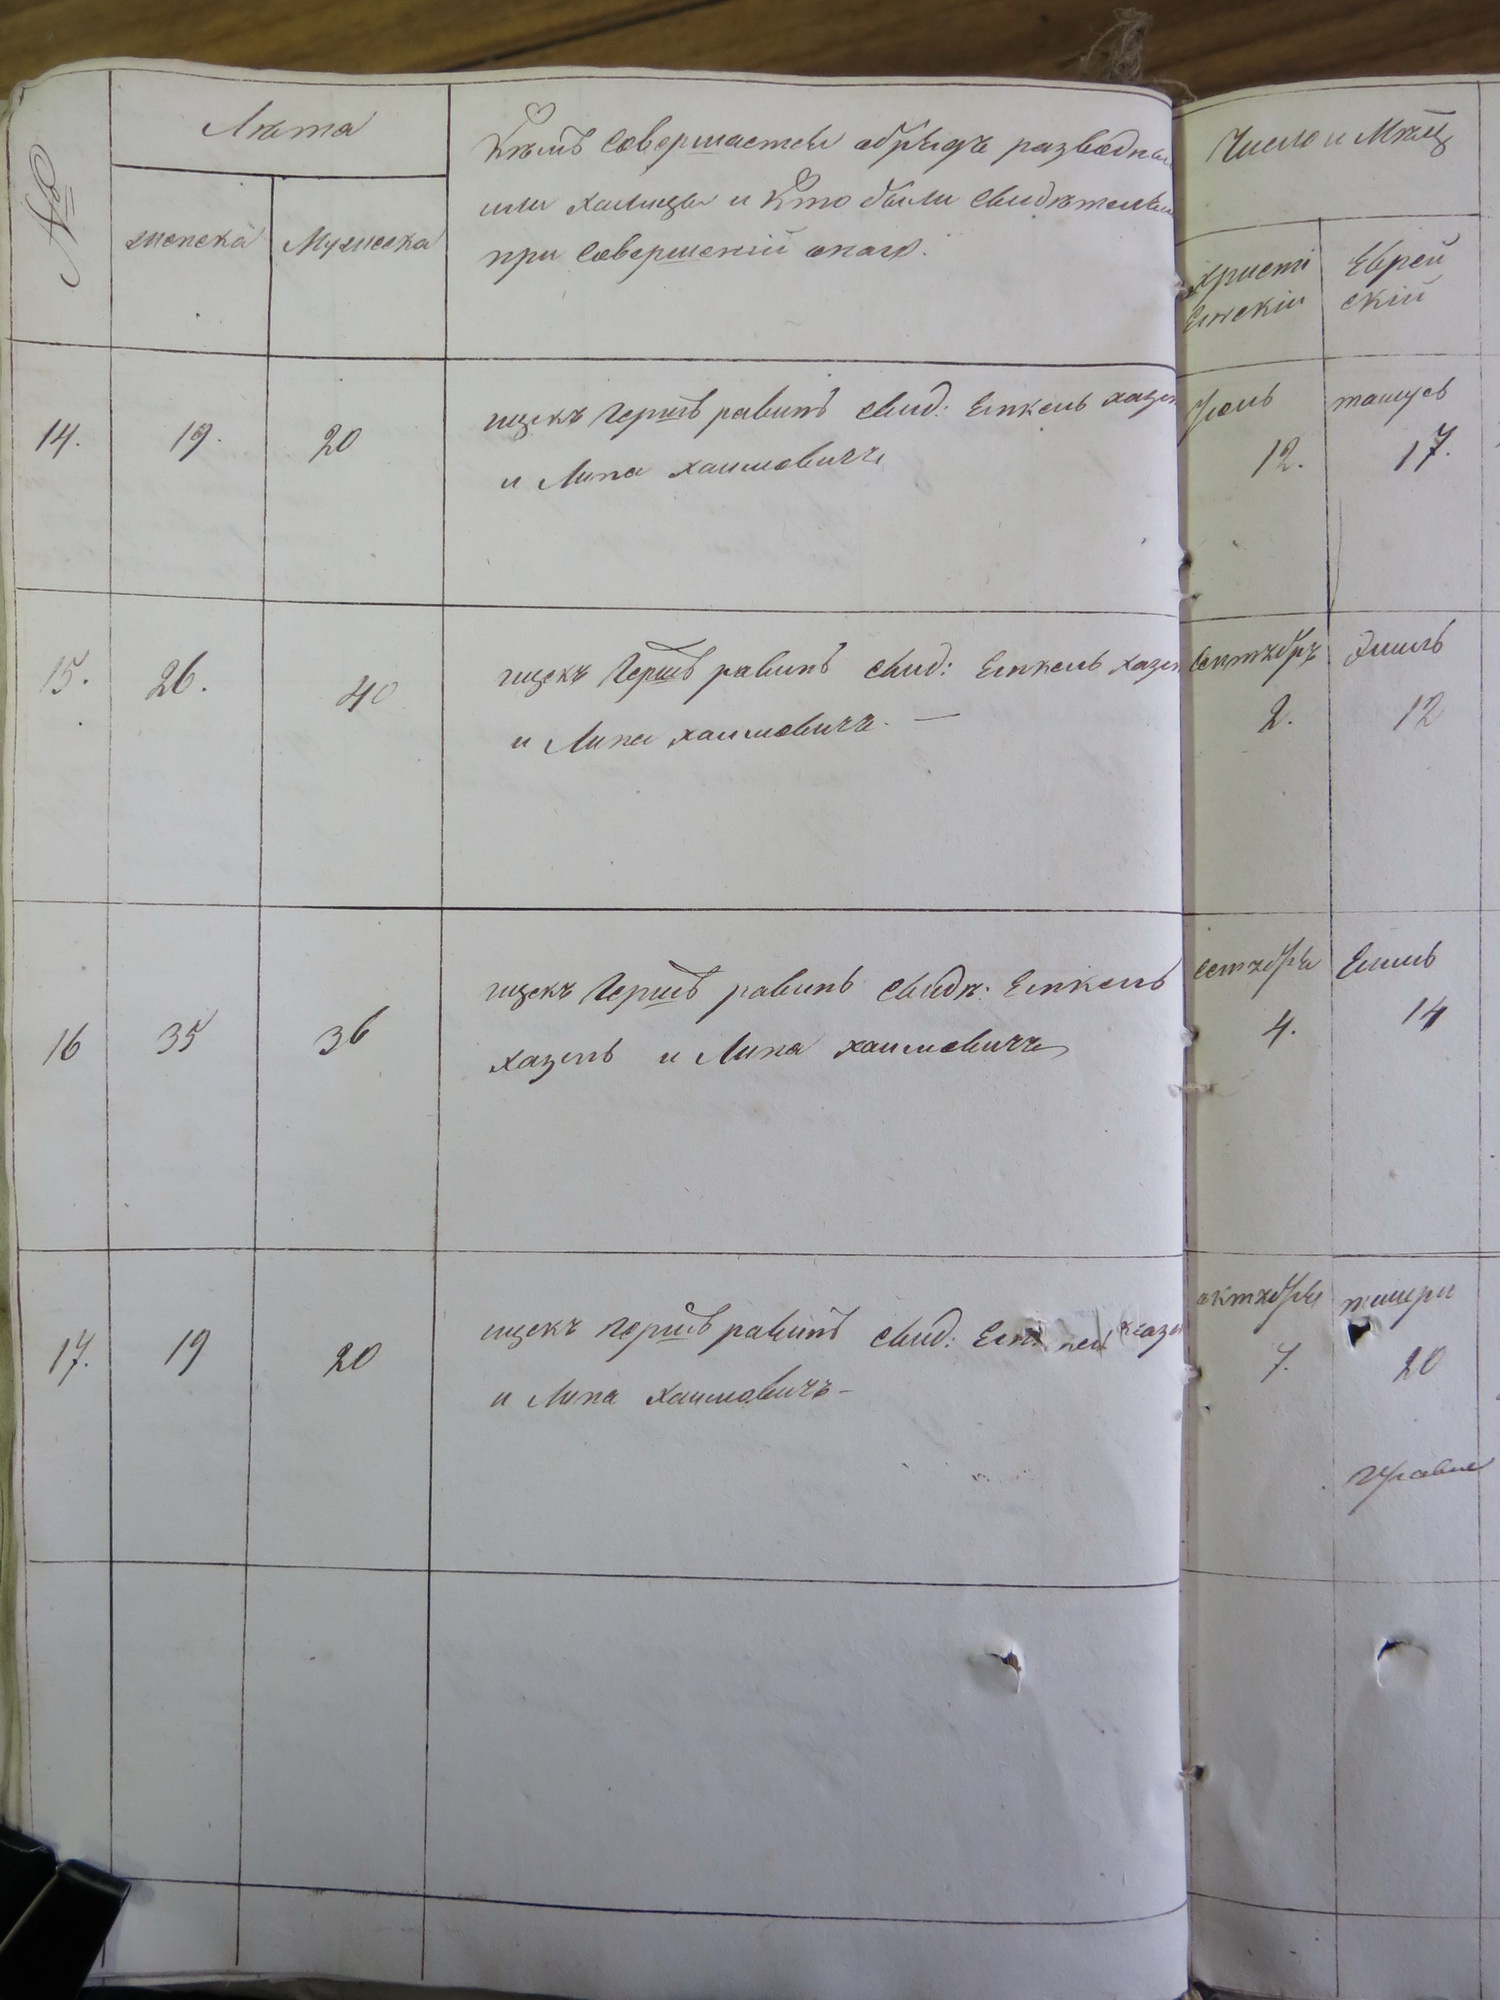 №
Лѣта
женска
Мужеска
Кѣмъ совершается обрядъ разводный
или халицы и Кто были свидѣтелями
при совершеній онаго.
Число и Мѣсяц
христі
Евреи
янскіи
скій
14.
19.
20
ицекъ Гершъ равинъ свид: Еинкель хазен
и Липа хаимовичъ
Іюль
тамусъ
12.
17.
15.
26.
40
ицекъ Гершъ равинъ свид: Еинкель хазен
и Липа хаимовичъ. —
Сентябръ
Элилъ
2.
12
16
35
36
ицекъ Гершъ равинъ свидѣ: Еинкель
хазенъ и Липа хаимовичъ
сетября
Елилъ
4.
14
17.
19
20
ицекъ Гершъ равинъ свид:
и Липа Хаимовичъ —
октября
тишри
7.
20